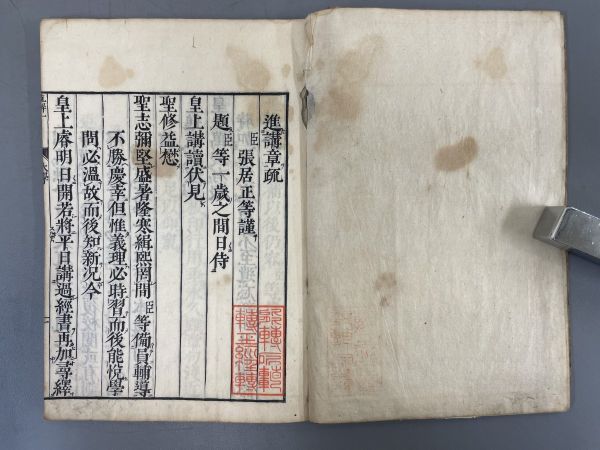 進講章疏
臣張居正等謹
題臣等一歲之間日侍
皇上講讀伏見
聖修益懋
聖志彌堅盛暑隆寒緝熙罔間臣等備員輔導
不勝慶幸但惟義理必時習而後能悅學
問必溫故而後知新況今
皇上睿明日開若將平日講過經書再加尋繹